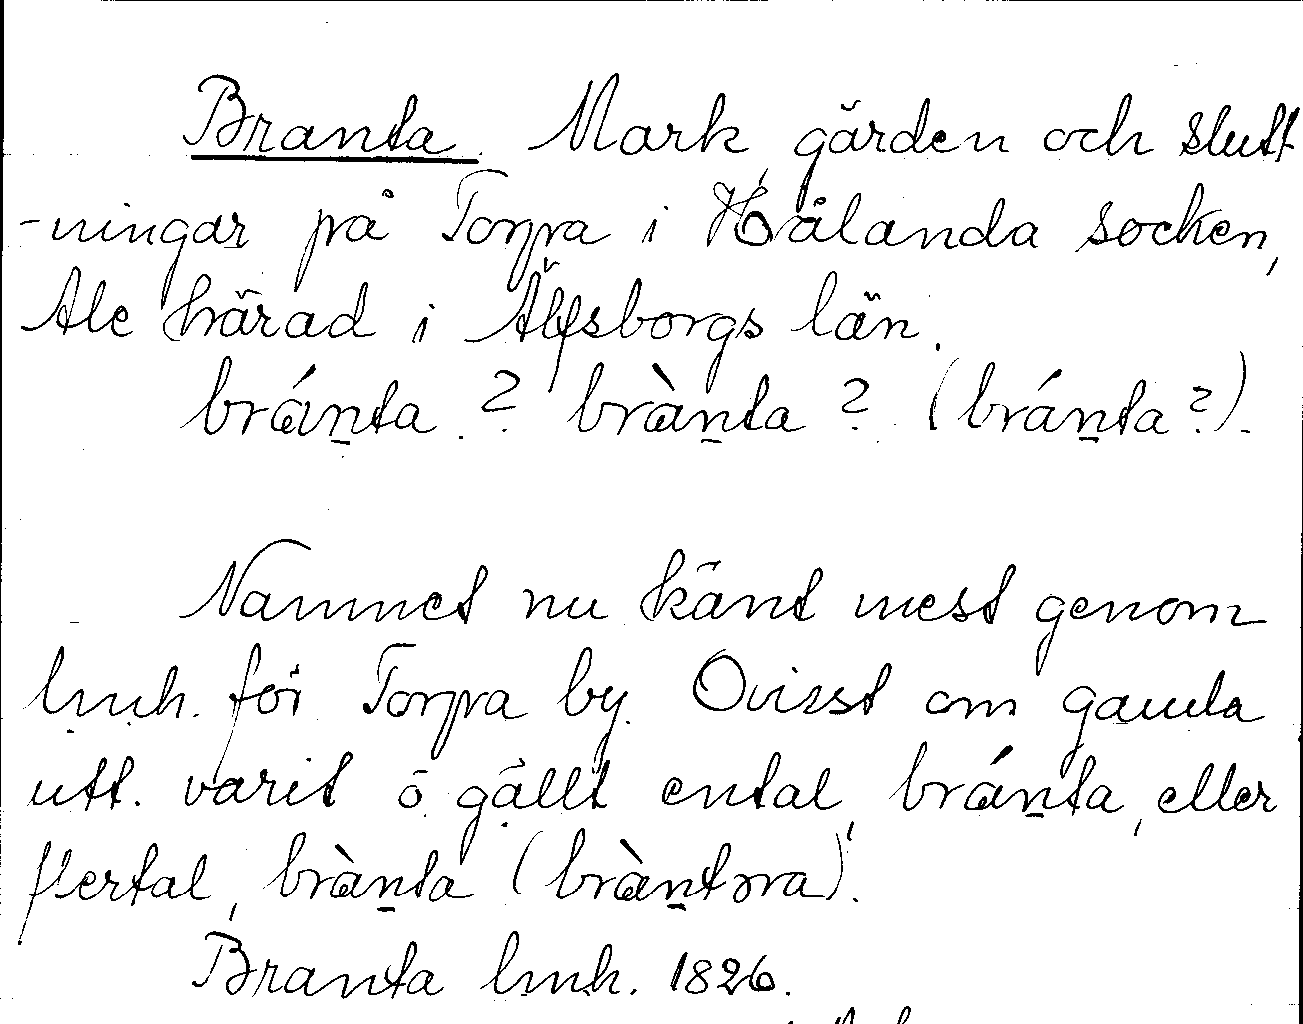 Branta. Mark, gärden och slutt
-ningar på Torpa i Hålanda socken,
Ale härad i Älfsborgs län.
bránta ? brànta ? (bránta ?).
Namnet nu känt mest genom
lmh. för Torpa by. Ovisst om gamla
utt. varit o gällt ental, bránta, eller
flertal, brànta (bràntəra).
Branta lmh. 1826.